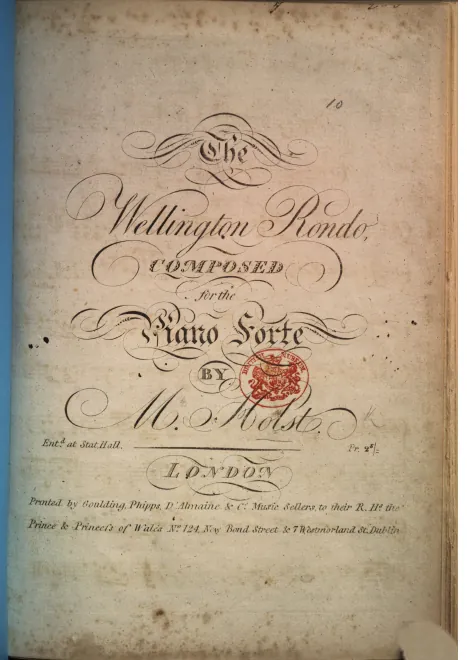 10
The
Wellington Rondo,
COMPOSED
for the
Piano Forte
BY
BRITISH MUSEUM
M. Holst.
Ent.d at Stat. Hall.
Pr.
LONDON
Printed by Goulding, Phipps, D'Almaine & Co. Music Sellers, to their R. Hs. the
Prince & Princess of Wales No. 124, New Bond Street & 7 Westmorland St. Dublin